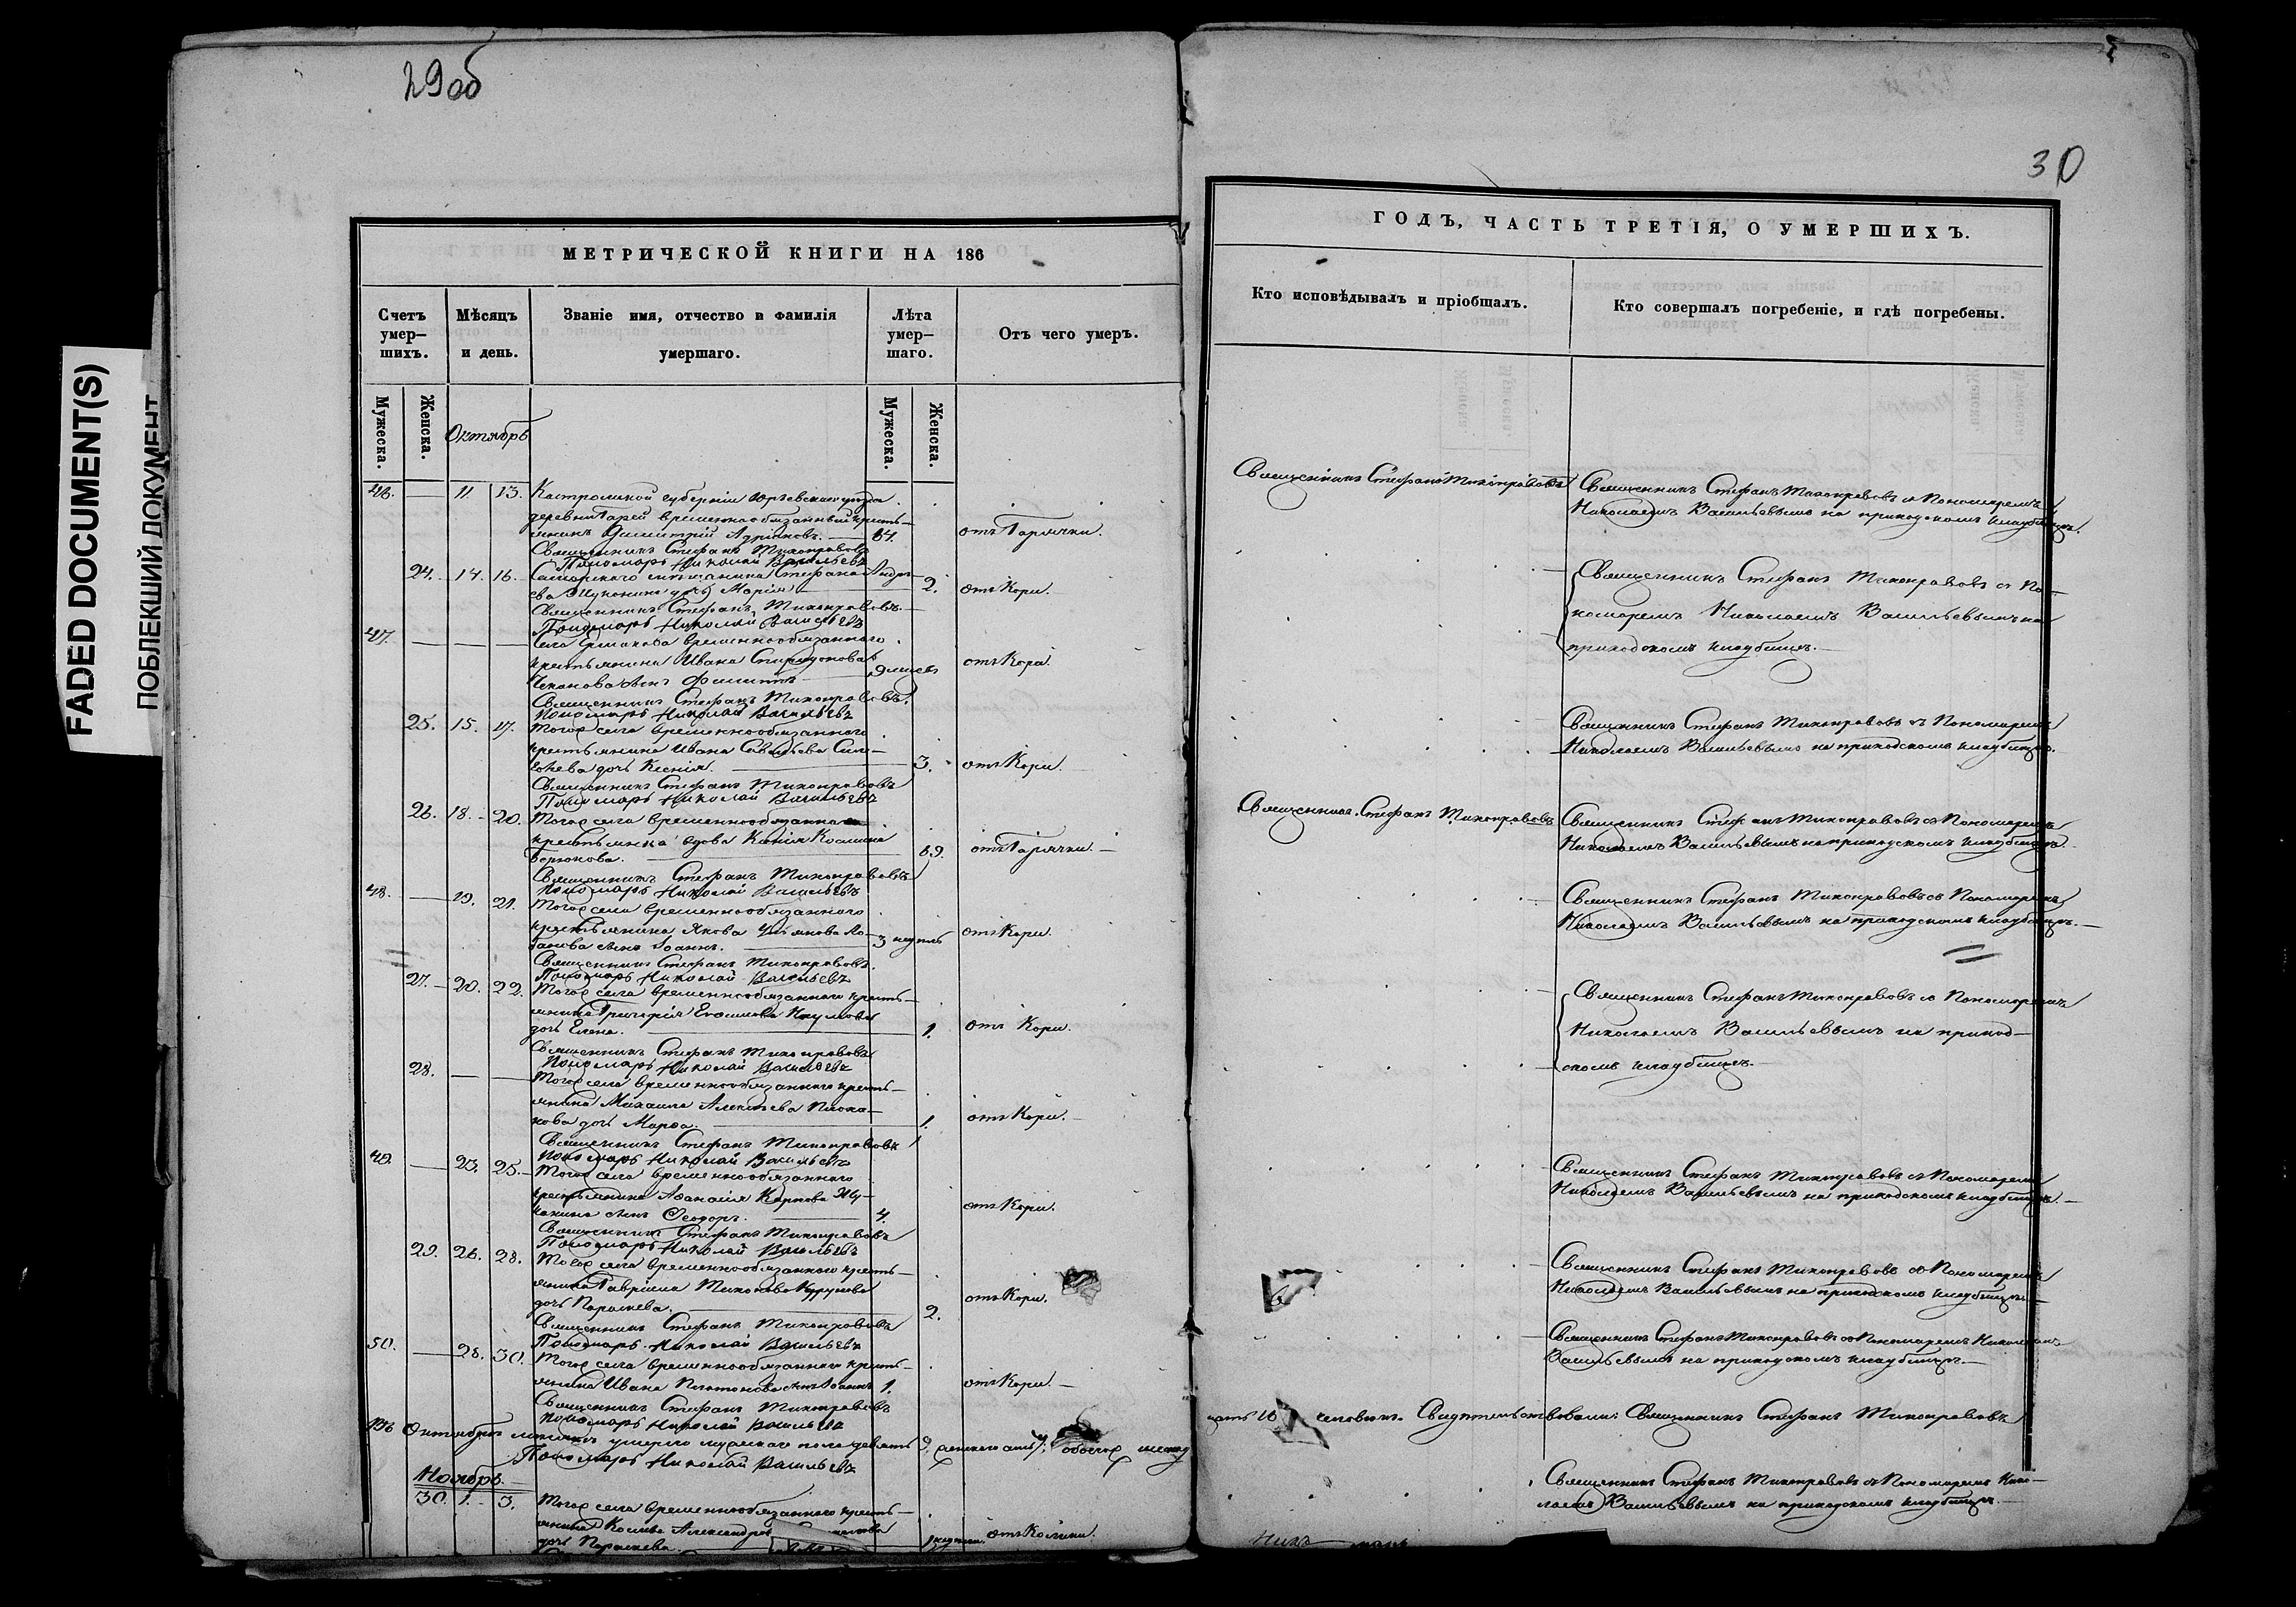 29об
30
FADED DOCUMENT(S)
ПОБЛЕКШИЙ ДОКУМЕНТ
МЕТРИЧЕСКОЙ КНИГИ НА 186
Счетъ умер– шихъ.
Мѣсяцъ и день.
Званіе имя, отчество и фамилія умершаго.
Лѣта умер– шаго.
Отъ чего умеръ.
Мужеска.
Женска.
Октябрь
Мужеска.
Женска.
46. — 11 13. Костромской губерніи Юрьевскаго уѣзда
деревни временнообязанный кресть–
янинъ Димитрій 64. отъ Горячки.
Священникъ Стефанъ Тихонравовъ
Пономарь Николай Васильевъ
24. 14. 16. Самарскаго мѣщанина Стефана Андре–
ева дочь Марія 2. отъ Кори.
Священникъ Стефанъ Тихонравовъ
Пономарь Николай Васильевъ
47. — — — Села временнообязаннаго
крестьянина Ивана Спиридонова
сынъ Филиппъ 9 мѣсяц. отъ Кори.
Священникъ Стефанъ Тихонравовъ
Пономарь Николай Васильевъ
25. 15. 17. Тогоже села временнообязаннаго
крестьянина Ивана Савельева
дочь Ксенія. 3. отъ Кори.
Священникъ Стефанъ Тихонравовъ
Пономарь Николай Васильевъ
26. 18. 20. Тогоже села временнообязаннаго
крестьянина вдова Ксенія Космина
69. отъ Горячки.
Священникъ Стефанъ Тихонравовъ
Пономарь Николай Васильевъ
48. — 19. 21. Тогоже села временнообязаннаго
крестьянина Якова Ульянова Ло–
банова сынъ Іоаннъ. 3 недѣль отъ Кори.
Священникъ Стефанъ Тихонравовъ
Пономарь Николай Васильевъ
27. 20. 22. Тогоже села временнообязаннаго кресть–
янина Григорія Наумова
дочь Елена. 1. отъ Кори.
Священникъ Стефанъ Тихонравовъ
Пономарь Николай Васильевъ
28. — — Тогоже села временнообязаннаго кресть–
янина Михаила Алексѣева
дочь Марѳа. 1. отъ Кори.
Священникъ Стефанъ Тихонравовъ
Пономарь Николай Васильевъ
49. — 23. 25. Тогоже села временнообязаннаго
крестьянина Аѳанасія Карпова
сынъ Ѳеодоръ. 4. отъ Кори.
Священникъ Стефанъ Тихонравовъ
Пономарь Николай Васильевъ
29. 26. 28. Тогоже села временнообязаннаго кресть–
янина Гавріила Тихонова
дочь Параскева. 2. отъ Кори.
Священникъ Стефанъ Тихонравовъ
Пономарь Николай Васильевъ
50. — 28. 30. Тогоже села временнообязаннаго кресть–
янина Ивана Платонова сынъ Іоаннъ 1. отъ Кори.
Священникъ Стефанъ Тихонравовъ
Пономарь Николай Васильевъ
Въ Октябрѣ мѣсяцѣ умерло мужеска пола
Пономарь Николай Васильевъ
Ноябрь.
30. 1. 3. Тогоже села временнообязаннаго кресть–
янина Космы Александрова
дочь Параскева.
ГОДЪ, ЧАСТЬ ТРЕТІЯ, О УМЕРШИХЪ.
Кто исповѣдывалъ и пріобщалъ.
Кто совершалъ погребеніе, и гдѣ погребены.
Священникъ Стефанъ Тихонравовъ
Священникъ Стефанъ Тихонравовъ съ Пономаремъ
Николаемъ Васильевымъ на приходскомъ кладбищѣ.
Священникъ Стефанъ Тихонравовъ съ По–
номаремъ Николаемъ Васильевымъ на
приходскомъ кладбищѣ.
Священникъ Стефанъ Тихонравовъ съ Пономаремъ
Николаемъ Васильевымъ на приходскомъ кладбищѣ.
Священникъ Стефанъ Тихонравовъ
Священникъ Стефанъ Тихонравовъ съ Пономаремъ
Николаемъ Васильевымъ на приходскомъ кладбищѣ.
Священникъ Стефанъ Тихонравовъ съ Пономаремъ
Николаемъ Васильевымъ на приходскомъ кладбищѣ.
Священникъ Стефанъ Тихонравовъ съ Пономаремъ
Николаемъ Васильевымъ на приход–
скомъ кладбищѣ.
Священникъ Стефанъ Тихонравовъ съ Пономаремъ
Николаемъ Васильевымъ на приходскомъ кладбищѣ.
Священникъ Стефанъ Тихонравовъ съ Пономаремъ
Николаемъ Васильевымъ на приходскомъ кладбищѣ.
Священникъ Стефанъ Тихонравовъ съ Пономаремъ Николаемъ
Васильевымъ на приходскомъ кладбищѣ.
человѣкъ. Свидѣтельствовали: Священникъ Стефанъ Тихонравовъ
Священникъ Стефанъ Тихонравовъ съ Пономаремъ Нико–
лаемъ Васильевымъ на приходскомъ кладбищѣ.